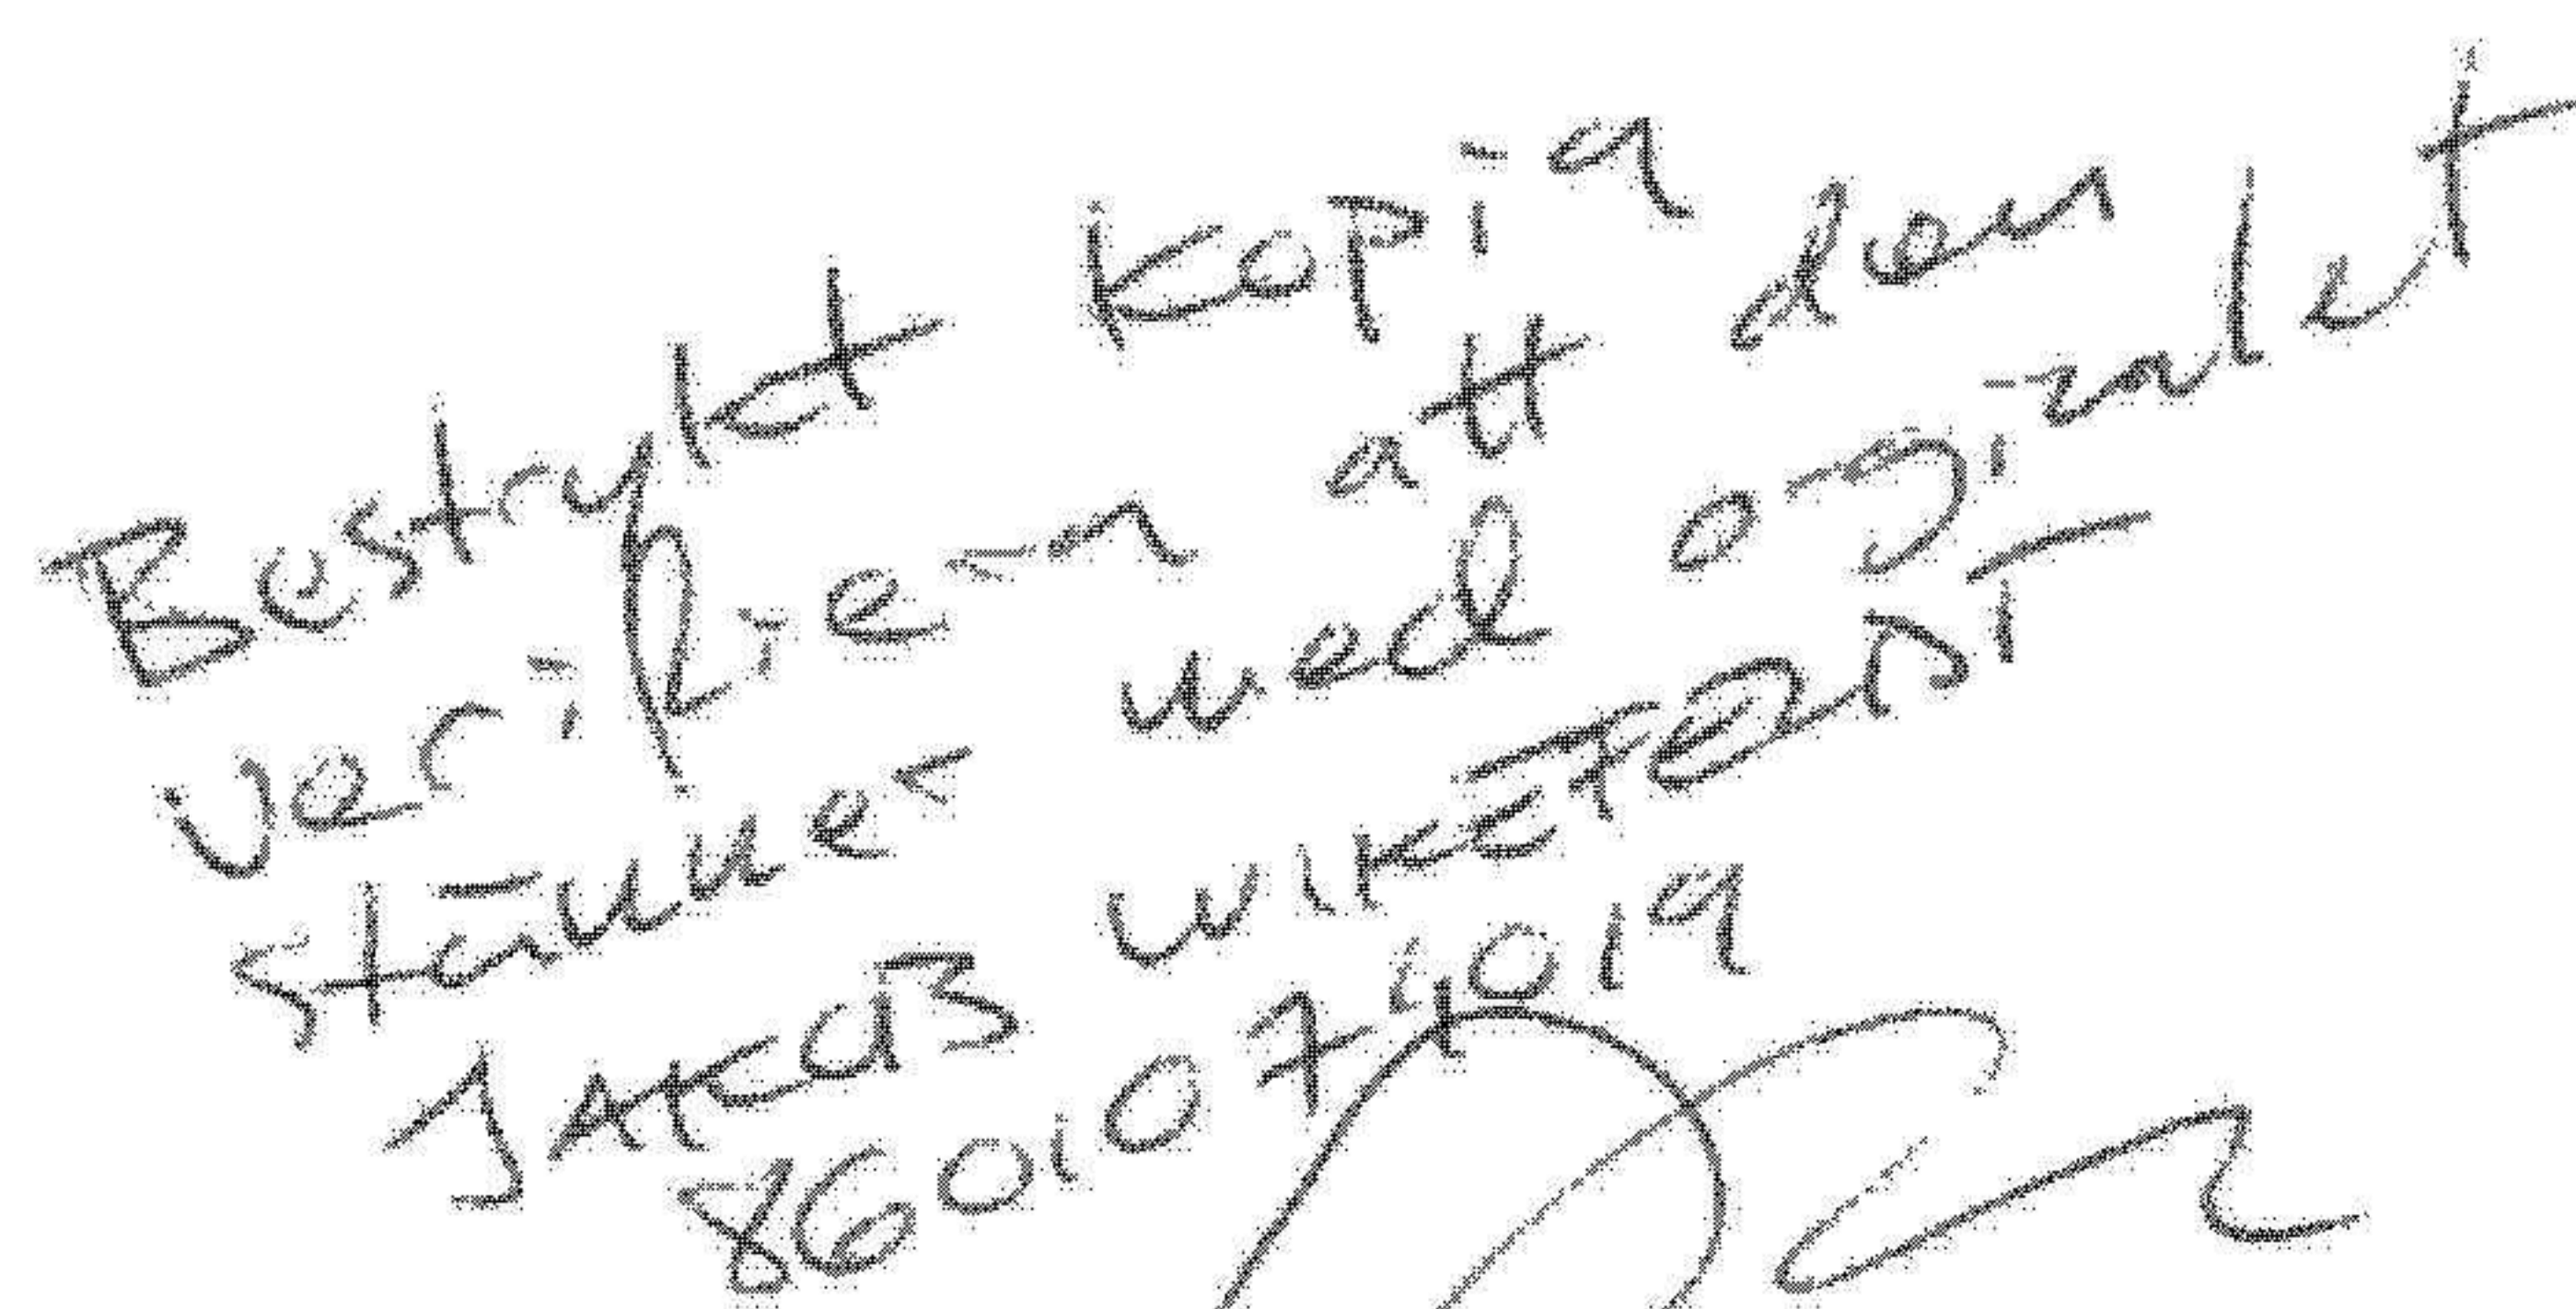 Bestyrkt kopia den
verifieras att
stämmer med originalet
JAKOB WIKEFELDT
860107-1019